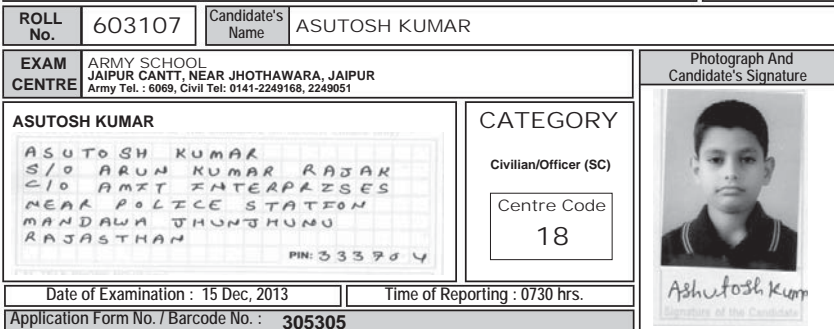 ROLL No. 603107 Candidate's Name ASUTOSH KUMAR
EXAM CENTRE ARMY SCHOOL
JAIPUR CANTT, NEAR JHOTHAWARA, JAIPUR
Army Tel. : 6069, Civil Tel: 0141-2249168, 2249051
Photograph And
Candidate's Signature
ASUTOSH KUMAR
ASUTOSH KUMAR
S/O ARUN KUMAR RAJAK
C/O AMIT INTERPRISES
NEAR POLICE STATION
MANDAWA JHUNJHUNU
RAJASTHAN
PIN: 333704
CATEGORY
Civilian/Officer (SC)
Centre Code
18
Ashutosh Kum
Signature of the Candidate
Date of Examination : 15 Dec, 2013 Time of Reporting : 0730 hrs.
Application Form No. / Barcode No. : 305305